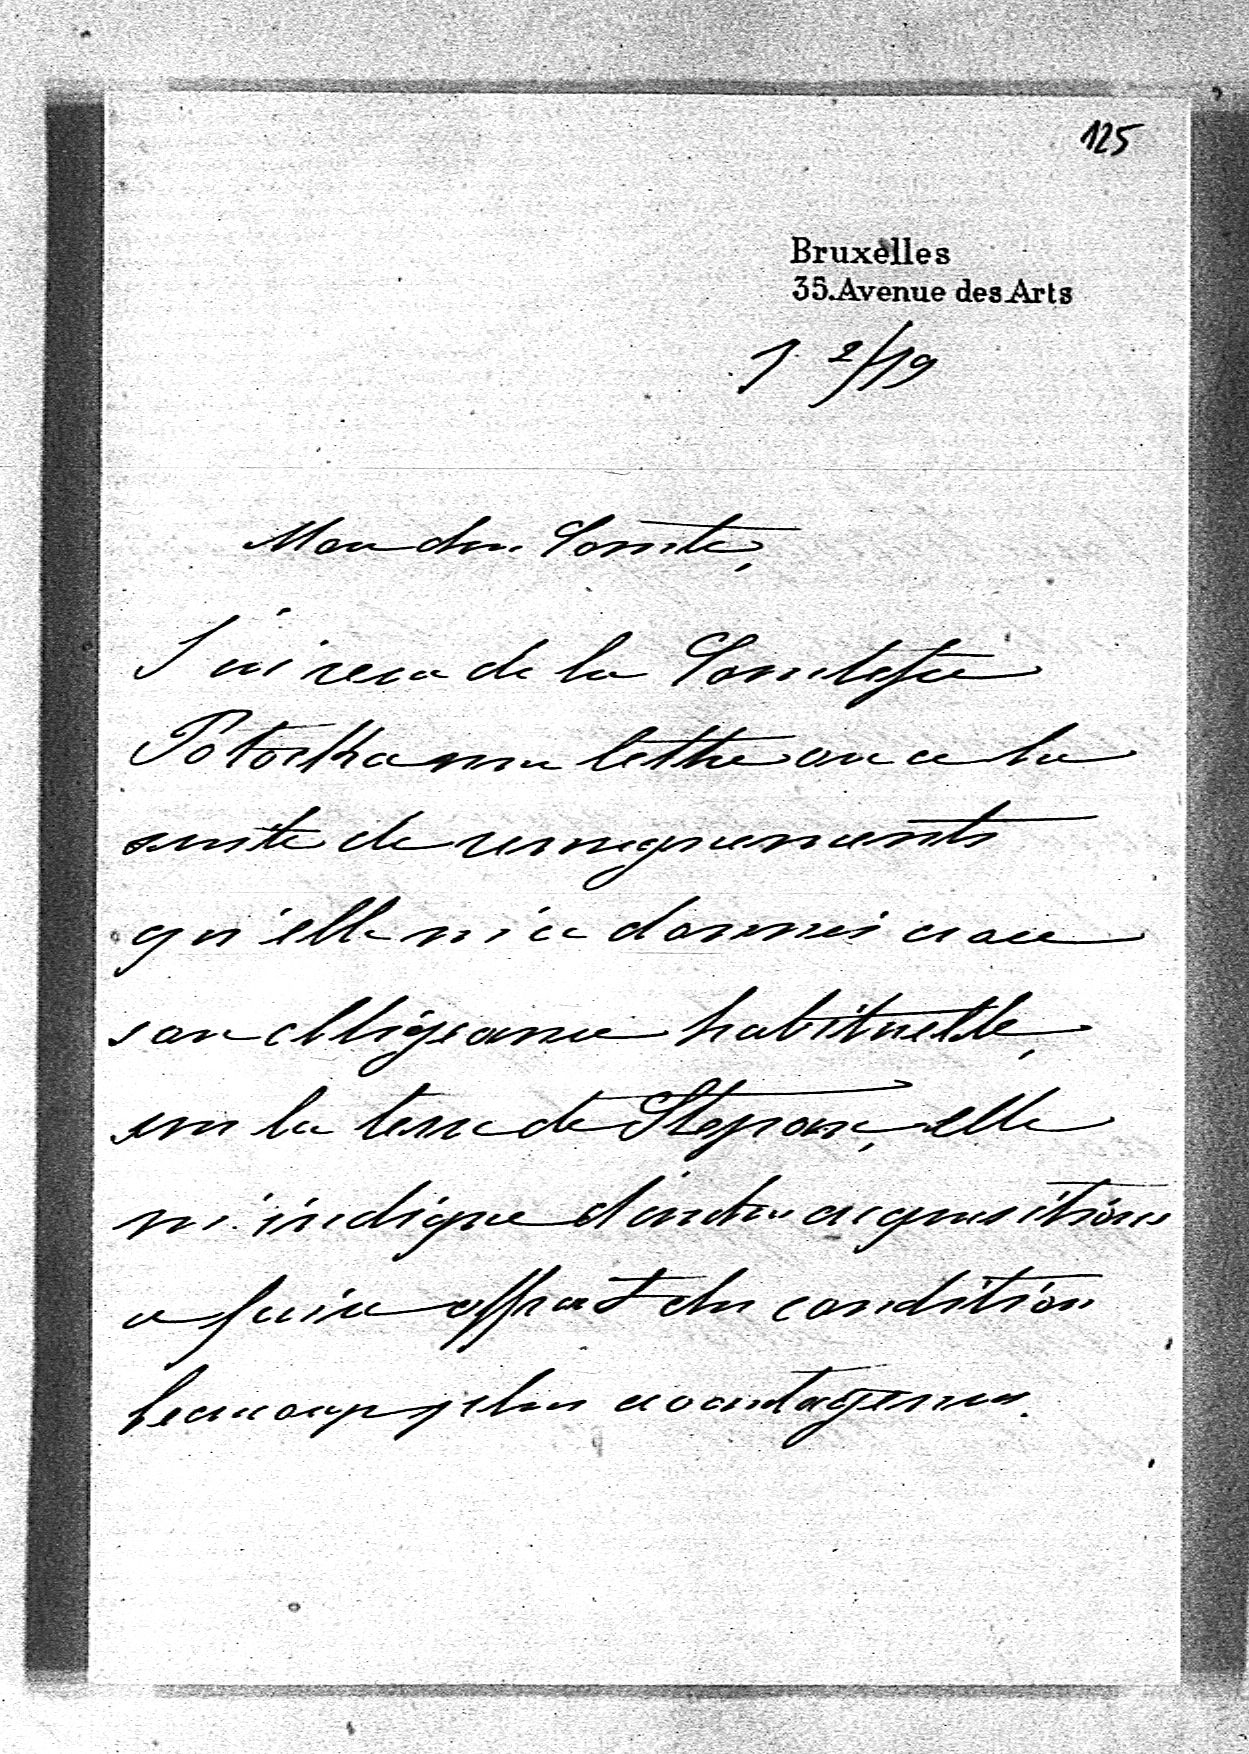 125
Bruxelles
35. Avenue des Arts
1 2/19
Mon cher Comte,
J'ai reçu de la Comtesse
Potocka une lettre ou a la
suite de renseignements
qu'elle m'a donnés avec
son obligeance habituelle,
sur la terre de Stepan, elle
m'indique d'autres acquisitions
a faire offrant des condition
beaucoup plus avantageuses.